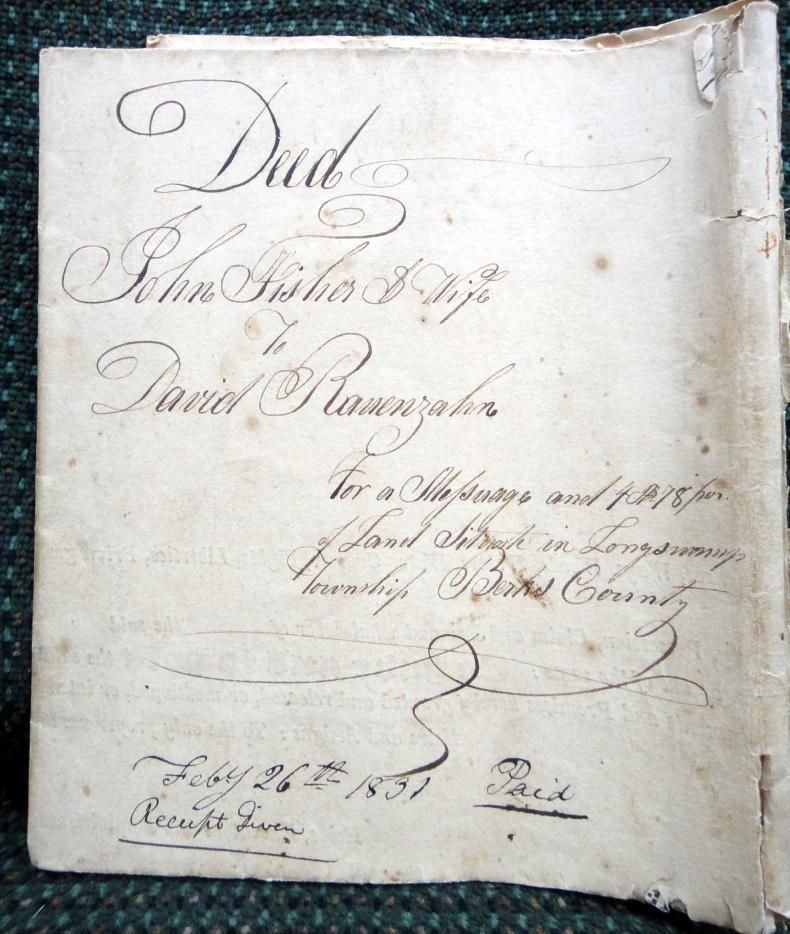 Deed
John Fisher & Wife
To
David Rauenzahn
For a Messuage and 4 A 78 per.
of Land Situate in Longswamp
Township Berks County
Feby 26th 1831 Paid
Receipt Given